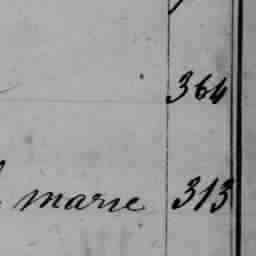 364
marie 313